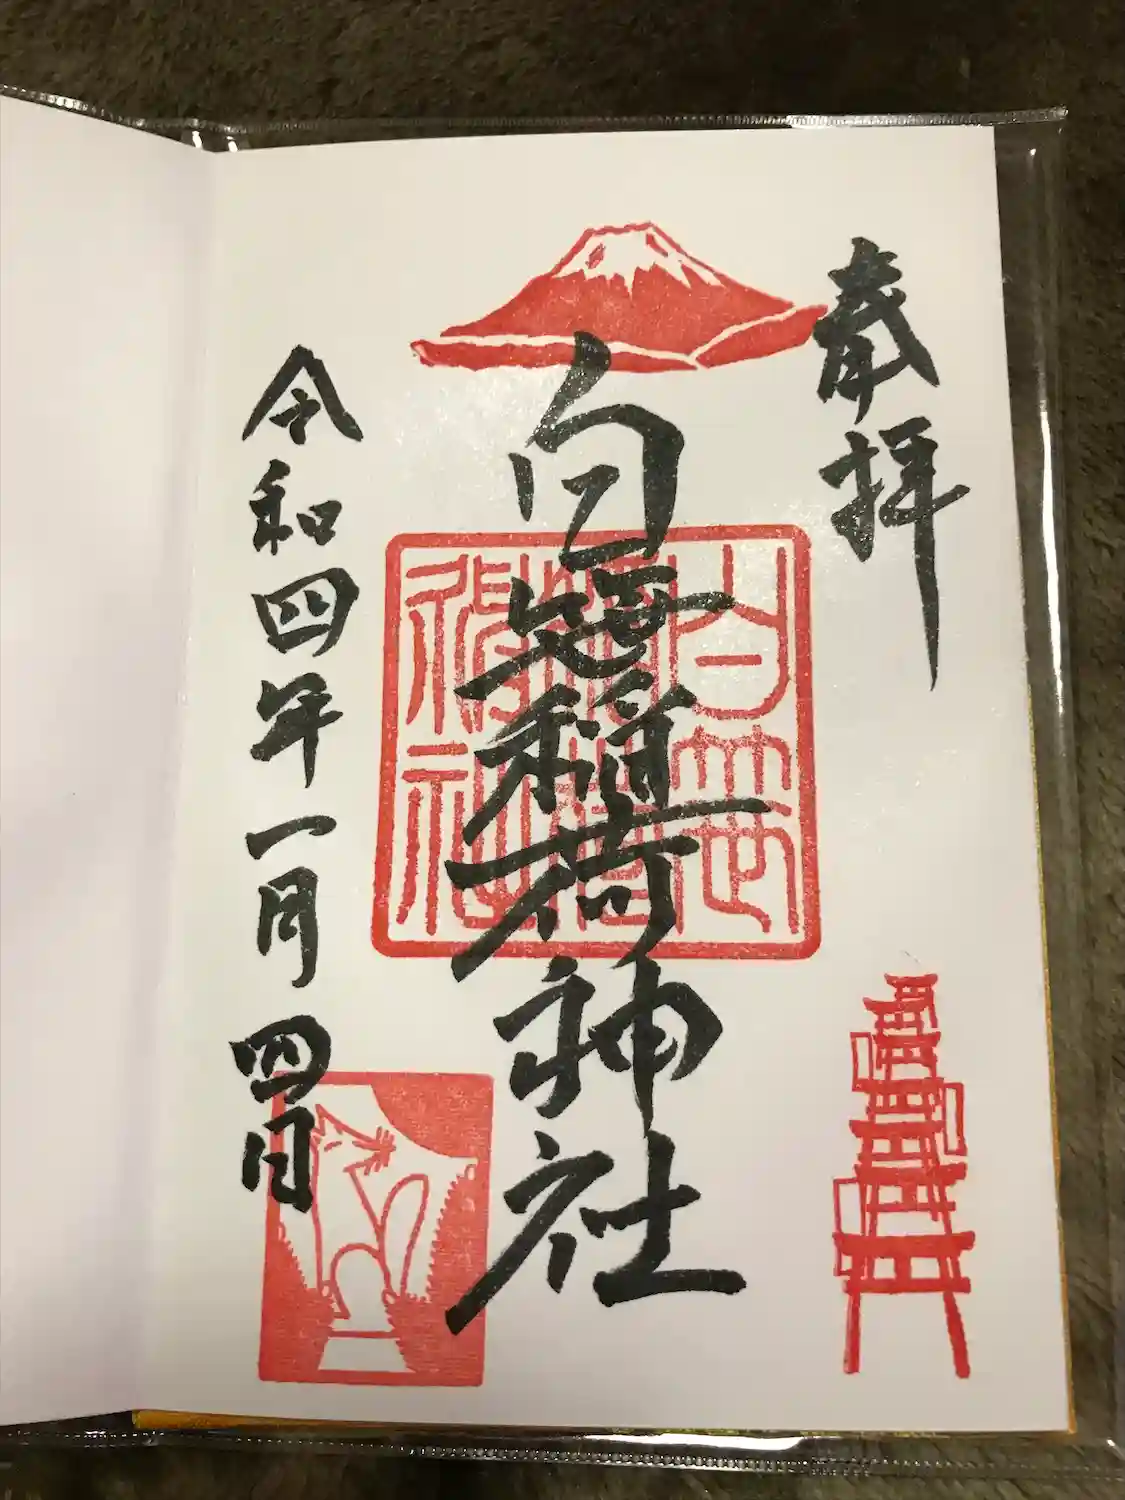 奉拝
白笹稲荷神社
令和四年一月四日
白笹
稲荷
神社